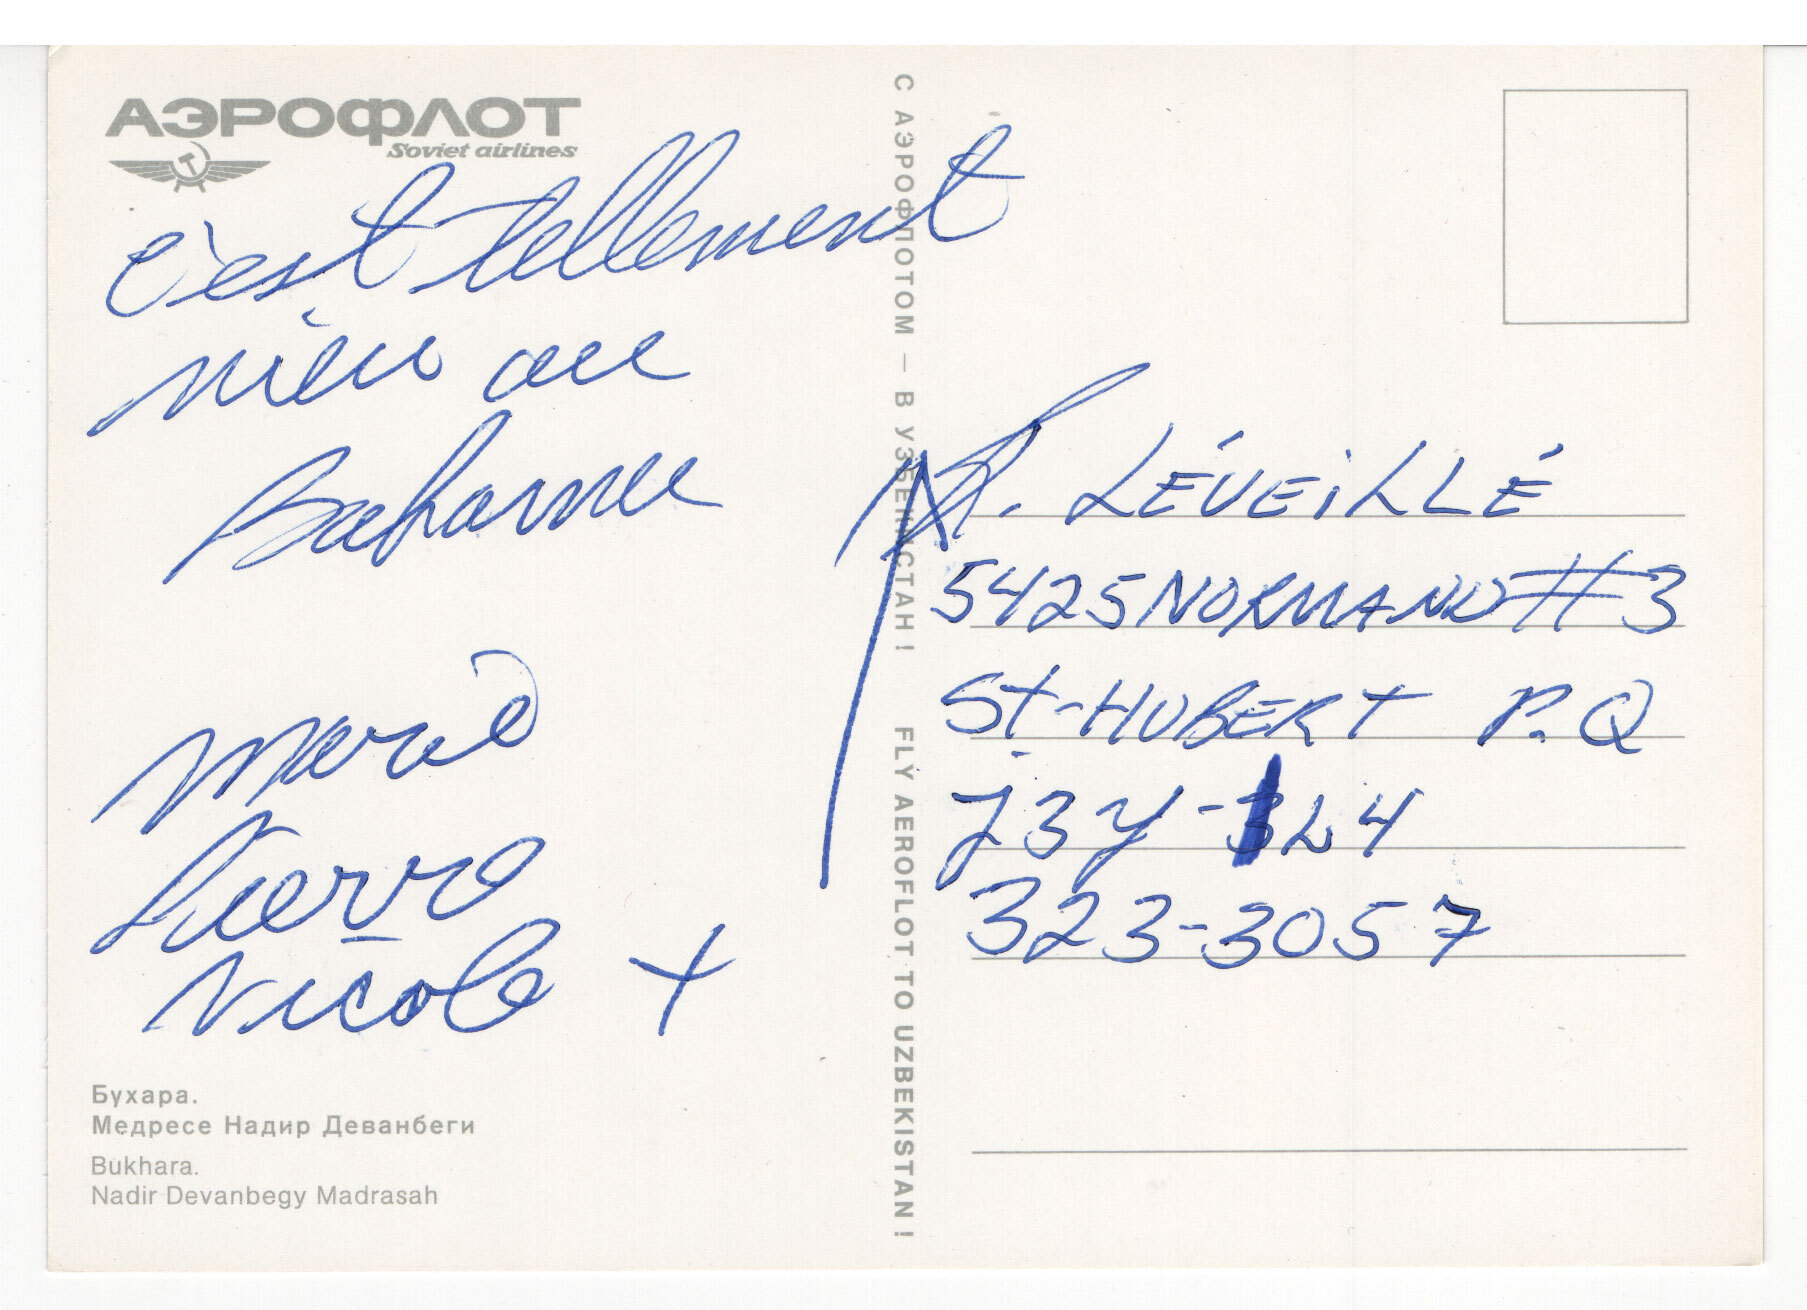 АЭРОФЛОТ
Soviet airlines
c'est tellement
mieu au
Bahamu
Mario
Pierre
Nicole +
Бухара.
Медресе Надир Деванбеги
Bukhara.
Nadir Devanbegy Madrasah
С АЭРОФЛОТОМ – В УЗБЕКИСТАН! FLY AEROFLOT TO UZBEKISTAN!
LÉVEILLÉ
5425 NORMAND #3
St-HUBERT P.Q
J3Y-L4
323-3057